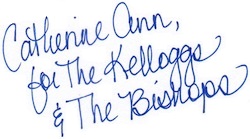 Catherine Ann,
for The Kelloggs
& The Bishops